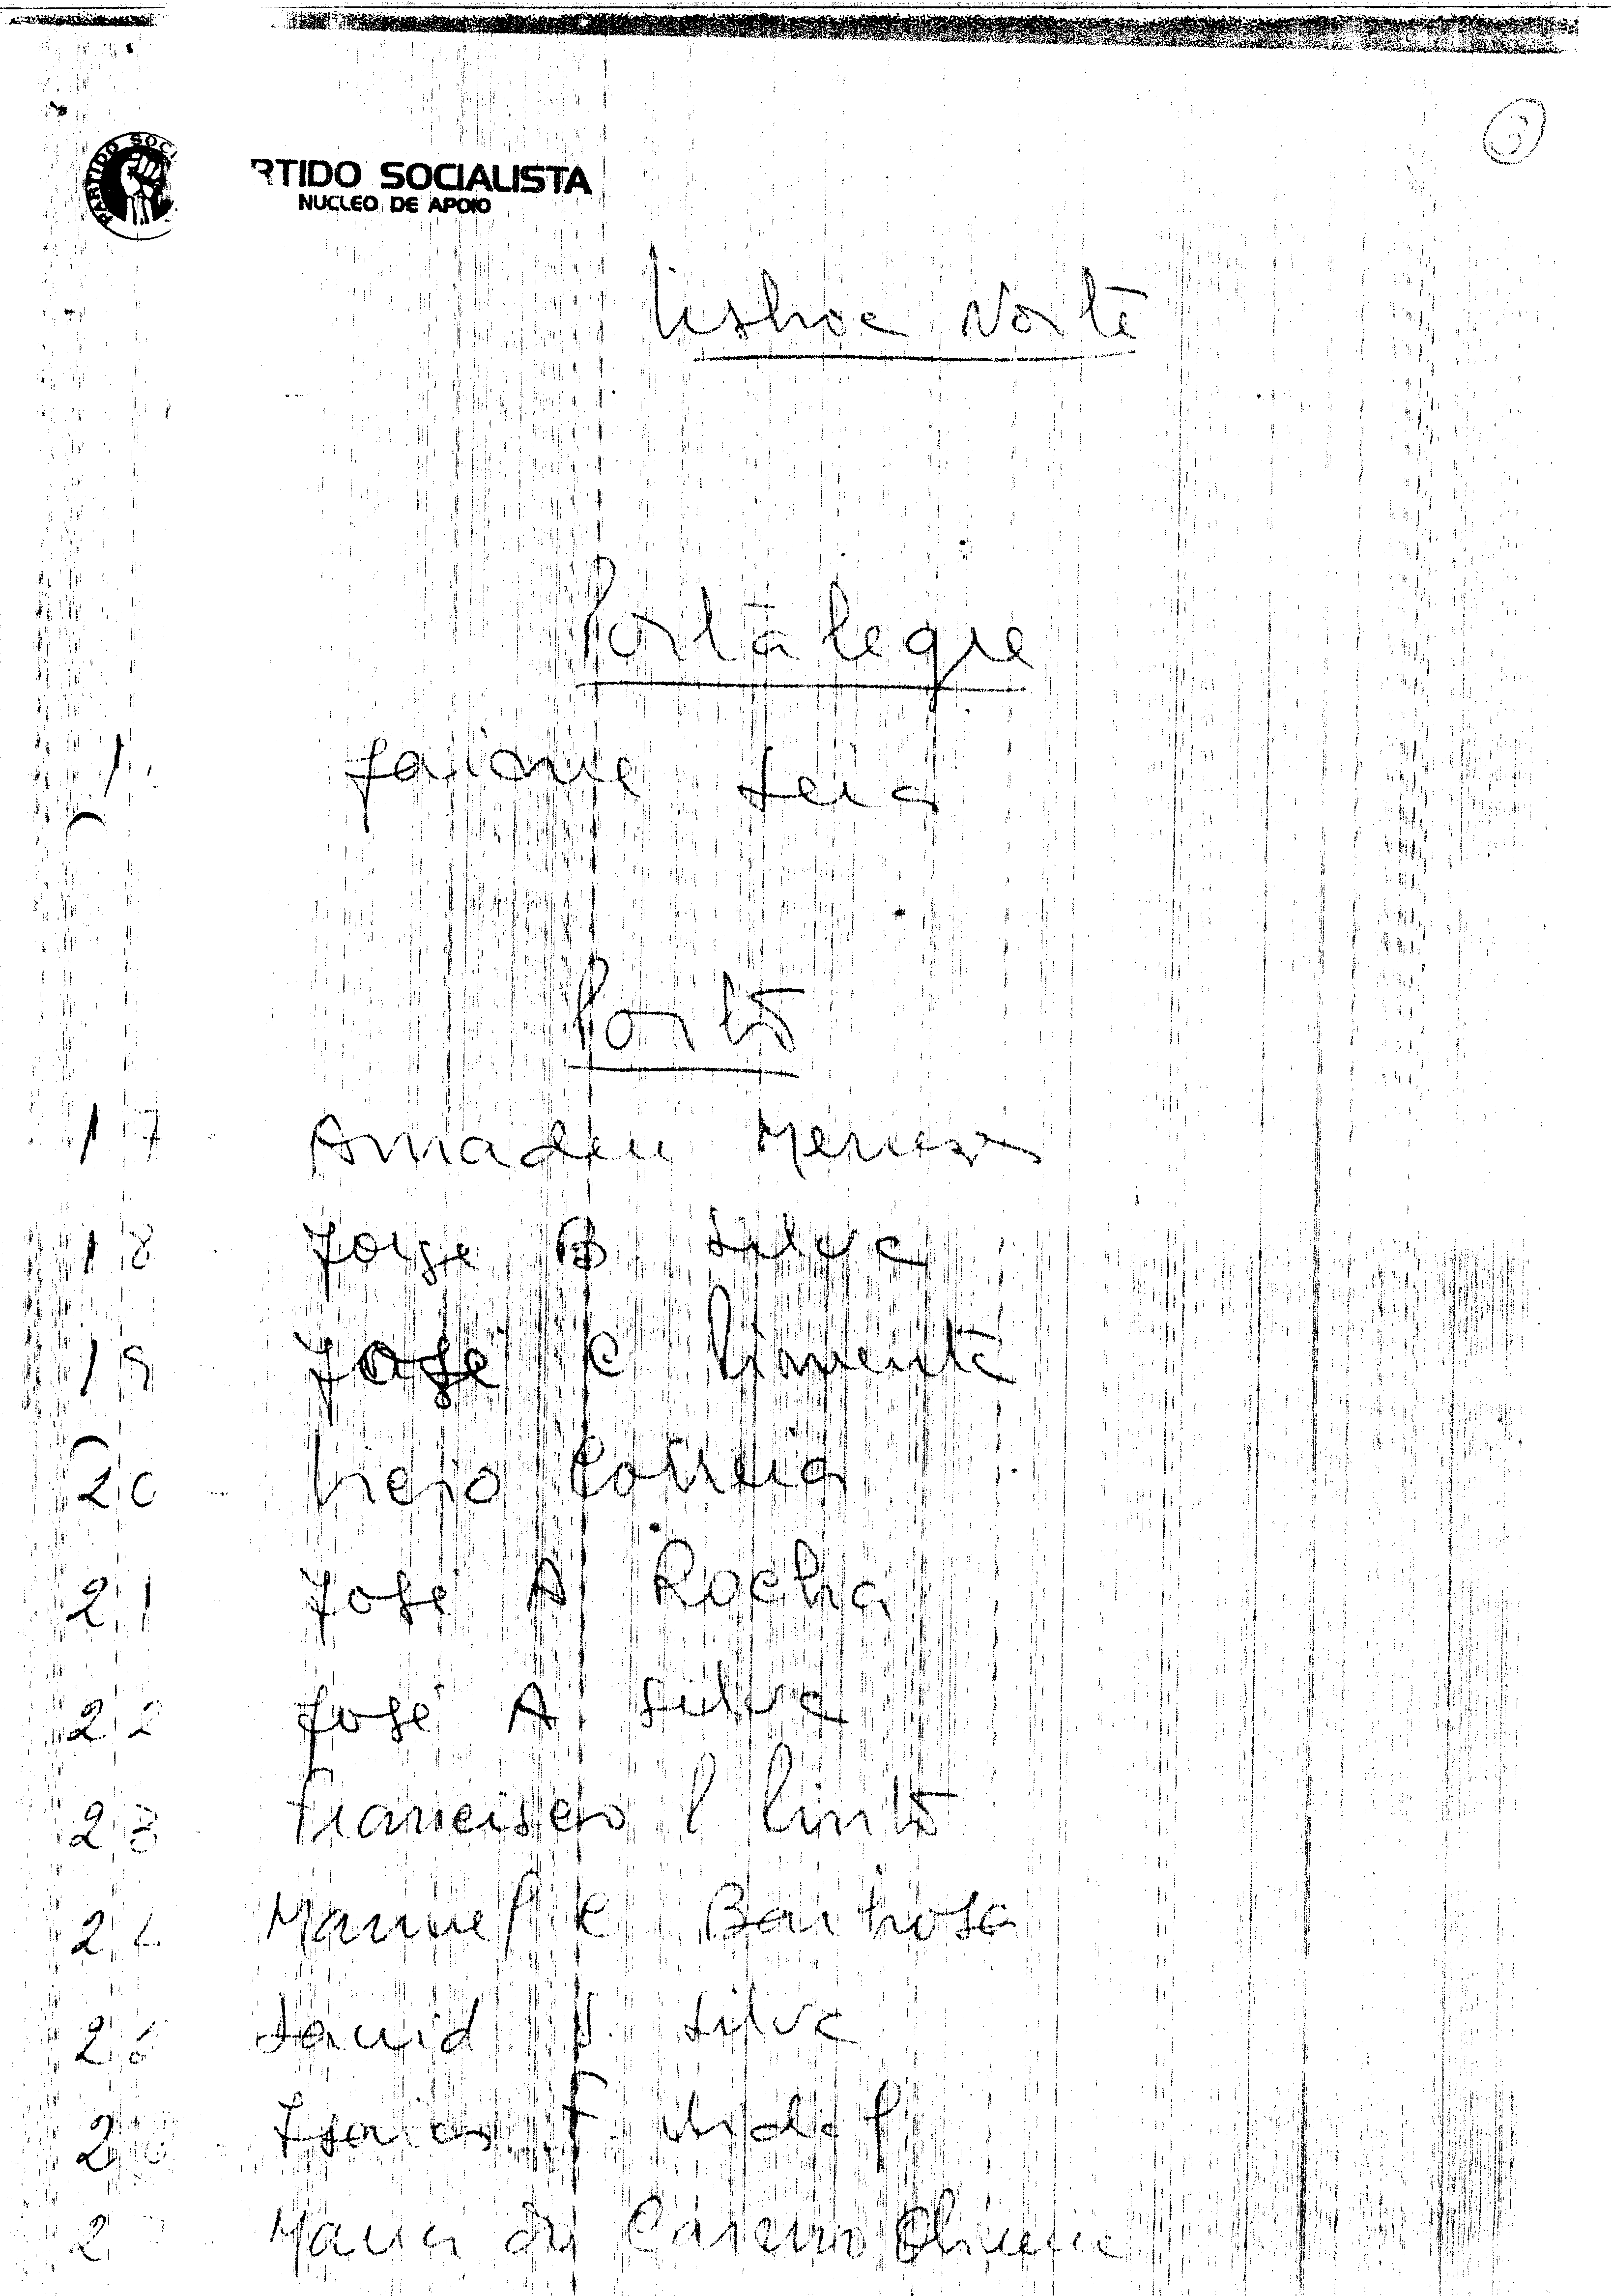 PARTIDO SOCI
RTIDO SOCIALISTA
NUCLEO DE APOIO
Lisboa Norte
Portalegre
Jaime
Porto
17 Amadeu Menezes
18 Jorge B Silva
19 José C Pimenta
20 Correia
21 José A Rocha
22 José A Silva
23 Francisco P Pinto
24 Manuel C Barbosa
David N. Silva
Isaias F
2 Maria do Carmo Oliveira